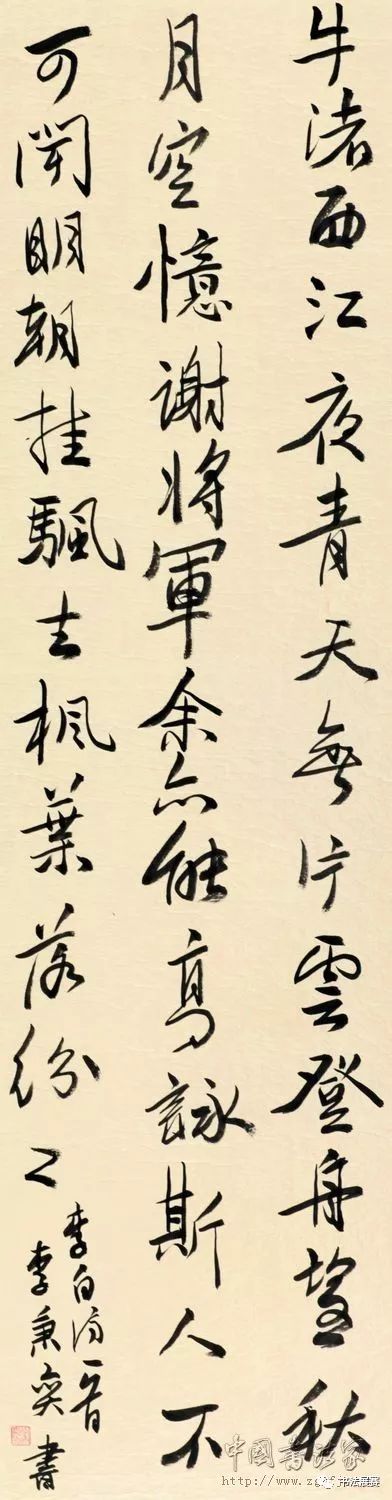 牛渚西江夜青天無片雲登舟望秋
月空憶謝將軍余亦能高詠斯人不
可聞明朝挂颿去楓葉落紛〻
李白詩一首
李秉奕書
中國書法家
http://www.zgsf
书法展赛